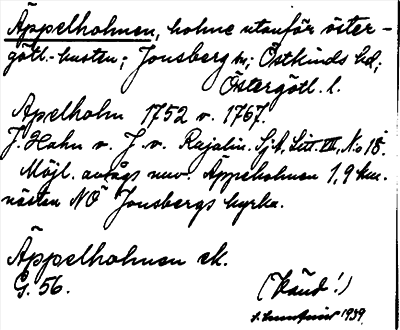 Äppelholmen, holme utanför öster-
götl.-kusten; Jonsberg sn; Östkinds hd;
Östergötl. l.
Apelholm 1752 o. 1767.
J. Hahn o. J. v. Rajalin. Sj.A. Litt. III, No 18.
Möjl. avsågs nuv. Äppelholmen 1,9 km.
nästen NÖ Jonsbergs kyrka.
Äppelholmen ek.
G. 56. (känd!)
1939